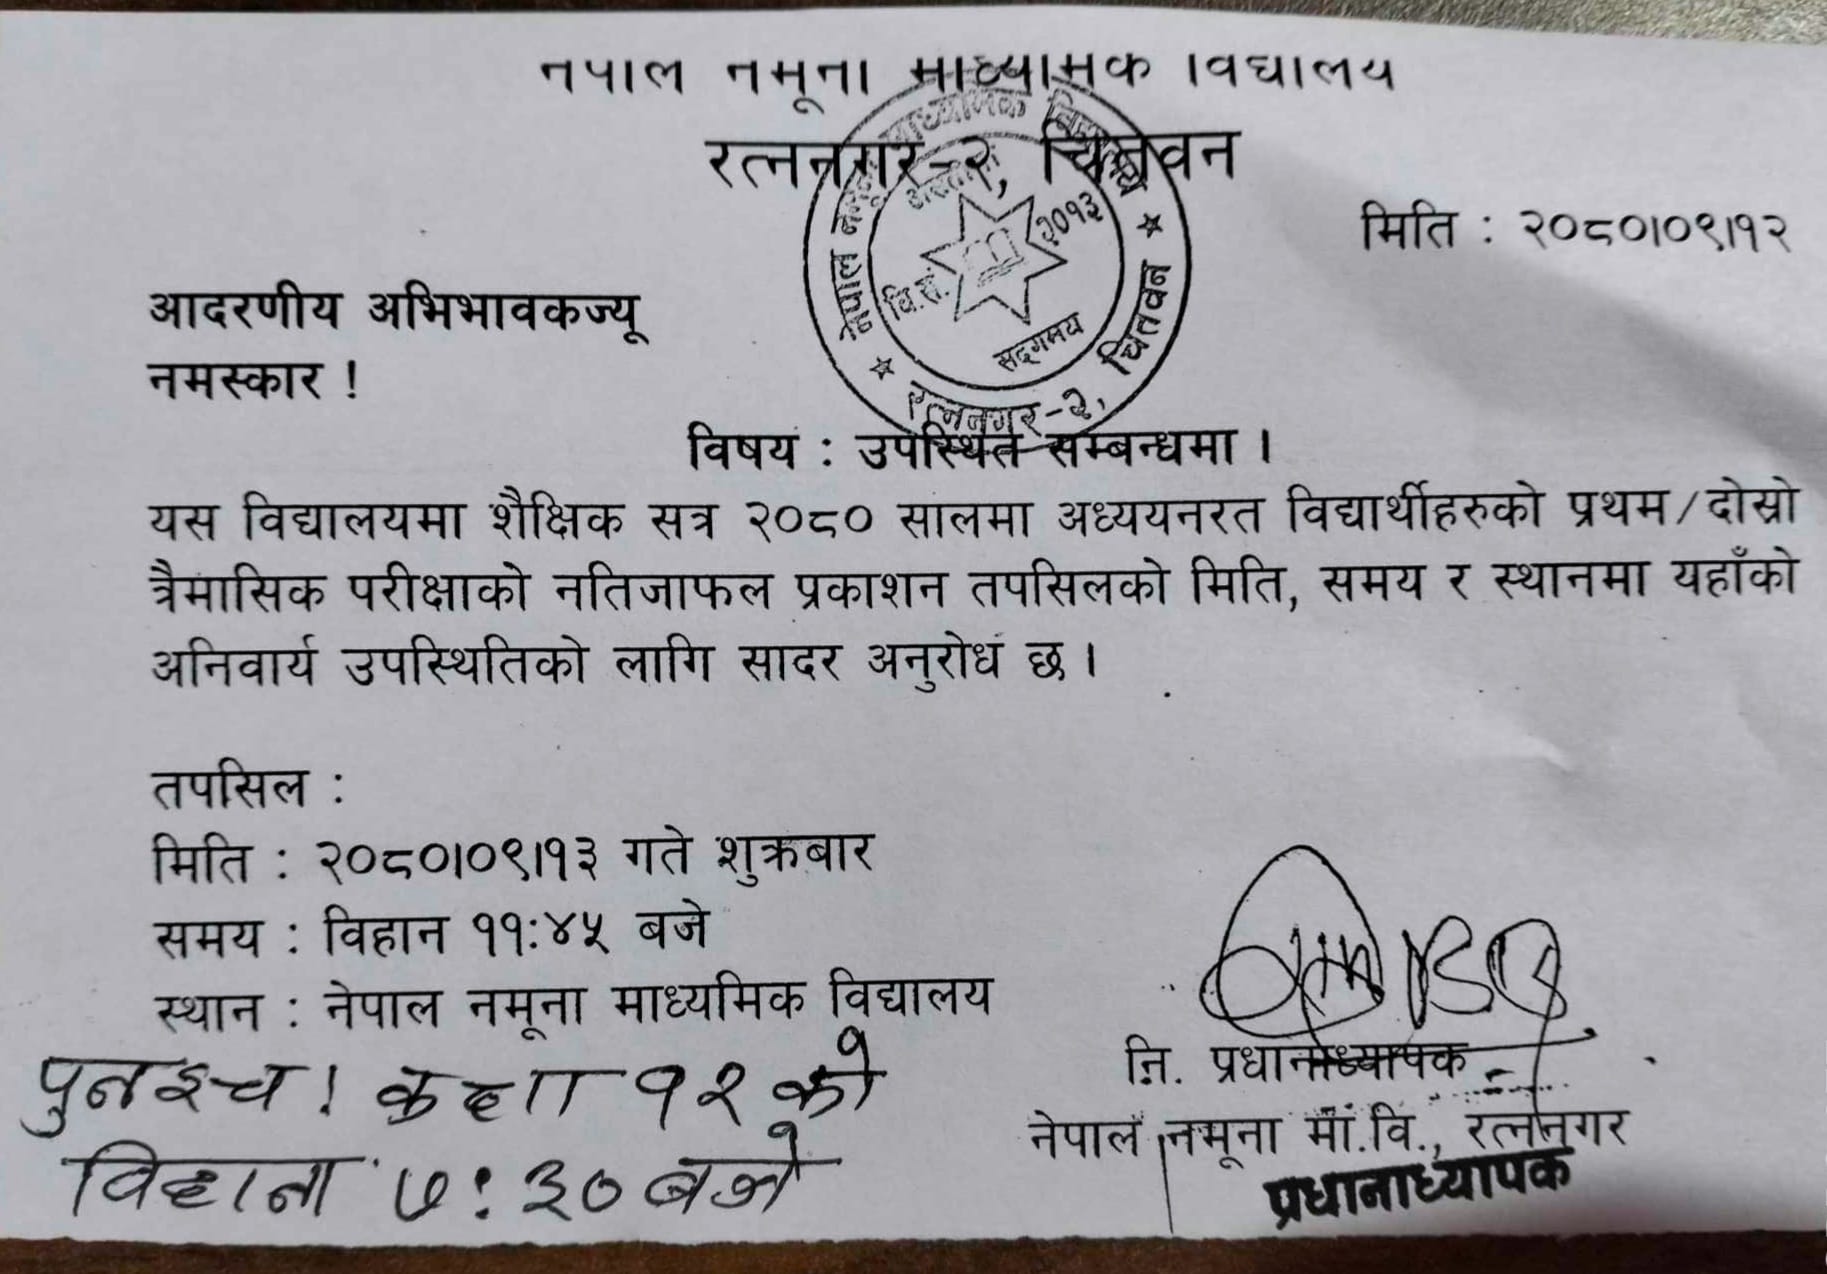 नेपाल नमूना माध्यमिक विद्यालय
रत्ननगर-२, चितवन
मिति : २०८०।०९।१२
नेपाल नमूना माध्यमिक विद्यालय
वि.सं. २०१३
सद्गमय
रत्ननगर-२, चितवन
आदरणीय अभिभावकज्यू
नमस्कार !
विषय : उपस्थित सम्बन्धमा ।
यस विद्यालयमा शैक्षिक सत्र २०८० सालमा अध्ययनरत विद्यार्थीहरुको प्रथम/दोस्रो
त्रैमासिक परीक्षाको नतिजाफल प्रकाशन तपसिलको मिति, समय र स्थानमा यहाँको
अनिवार्य उपस्थितिको लागि सादर अनुरोध छ ।
तपसिल :
मिति : २०८०।०९।१३ गते शुक्रबार
समय : विहान ११:४५ बजे
स्थान : नेपाल नमूना माध्यमिक विद्यालय
पुनश्च ! कक्षा १२ को
विहान ७:३० बजे
नि. प्रधानाध्यापक
नेपाल नमूना मा.वि., रत्ननगर
प्रधानाध्यापक